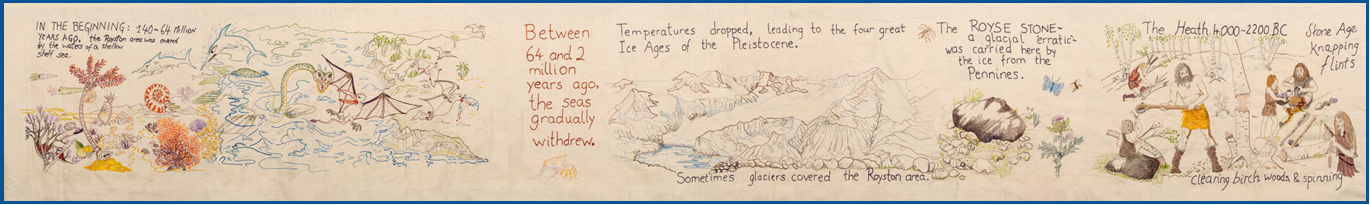 IN THE BEGINNING: 140-64 Million
YEARS AGO. the Royston area was covered
by the waters of a shallow
shelf sea.
Between
64 and 2
million
years ago,
the seas
gradually
withdrew.
Temperatures dropped, leading to the four great
Ice Ages of the Pleistocene.
Sometimes glaciers covered the Royston area.
The ROYSE STONE~
a glacial 'erratic'~
was carried here by
the ice from the
Pennines.
The Heath 4000-2200 BC
Stone Age
knapping
flints
clearing birch woods & spinning